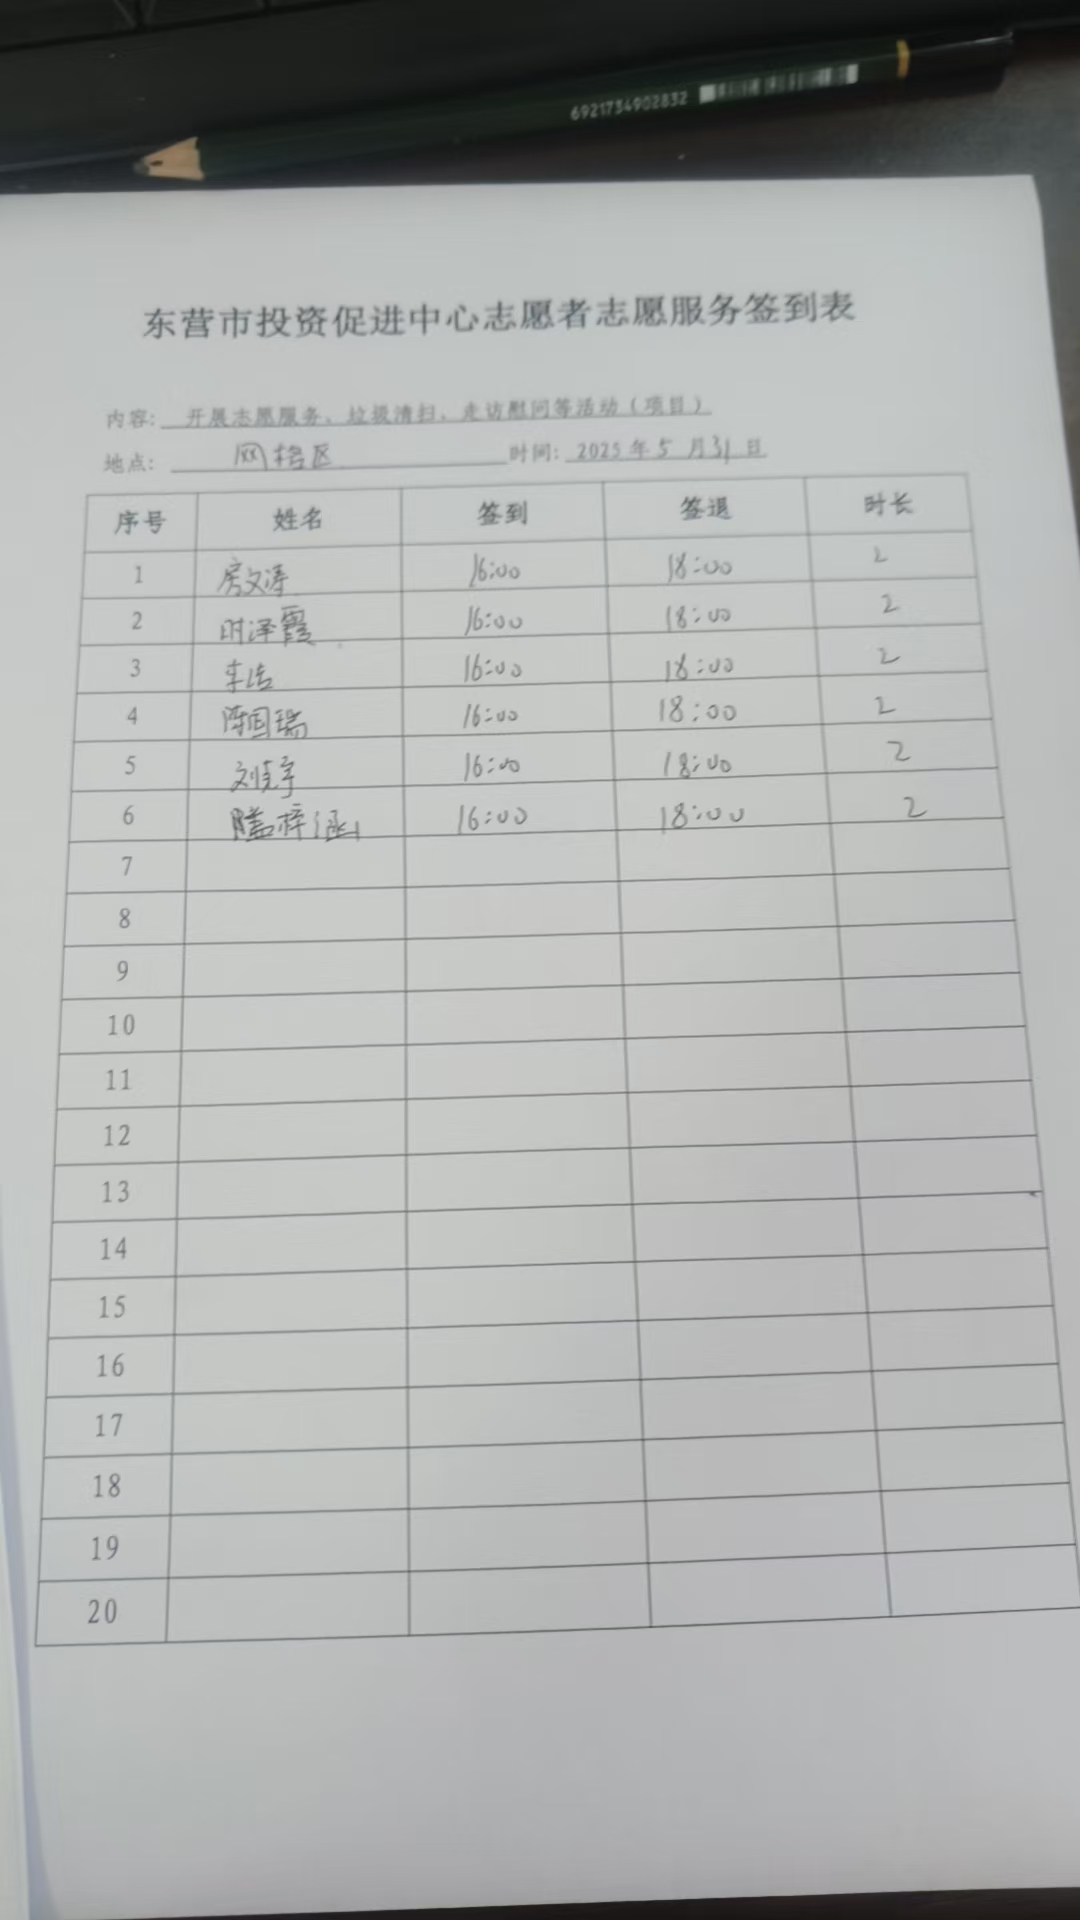 6921734902832
东营市投资促进中心志愿者志愿服务签到表
内容: 开展志愿服务、垃圾清扫、走访慰问等活动（项目）
地点: 网格区 时间: 2025 年 5 月 31 日
序号 姓名 签到 签退 时长
1 房文涛 16:00 18:00 2
2 时泽霞 16:00 18:00 2
3 16:00 18:00 2
4 陈国瑞 16:00 18:00 2
5 16:00 18:00 2
6 16:00 18:00 2
7
8
9
10
11
12
13
14
15
16
17
18
19
20